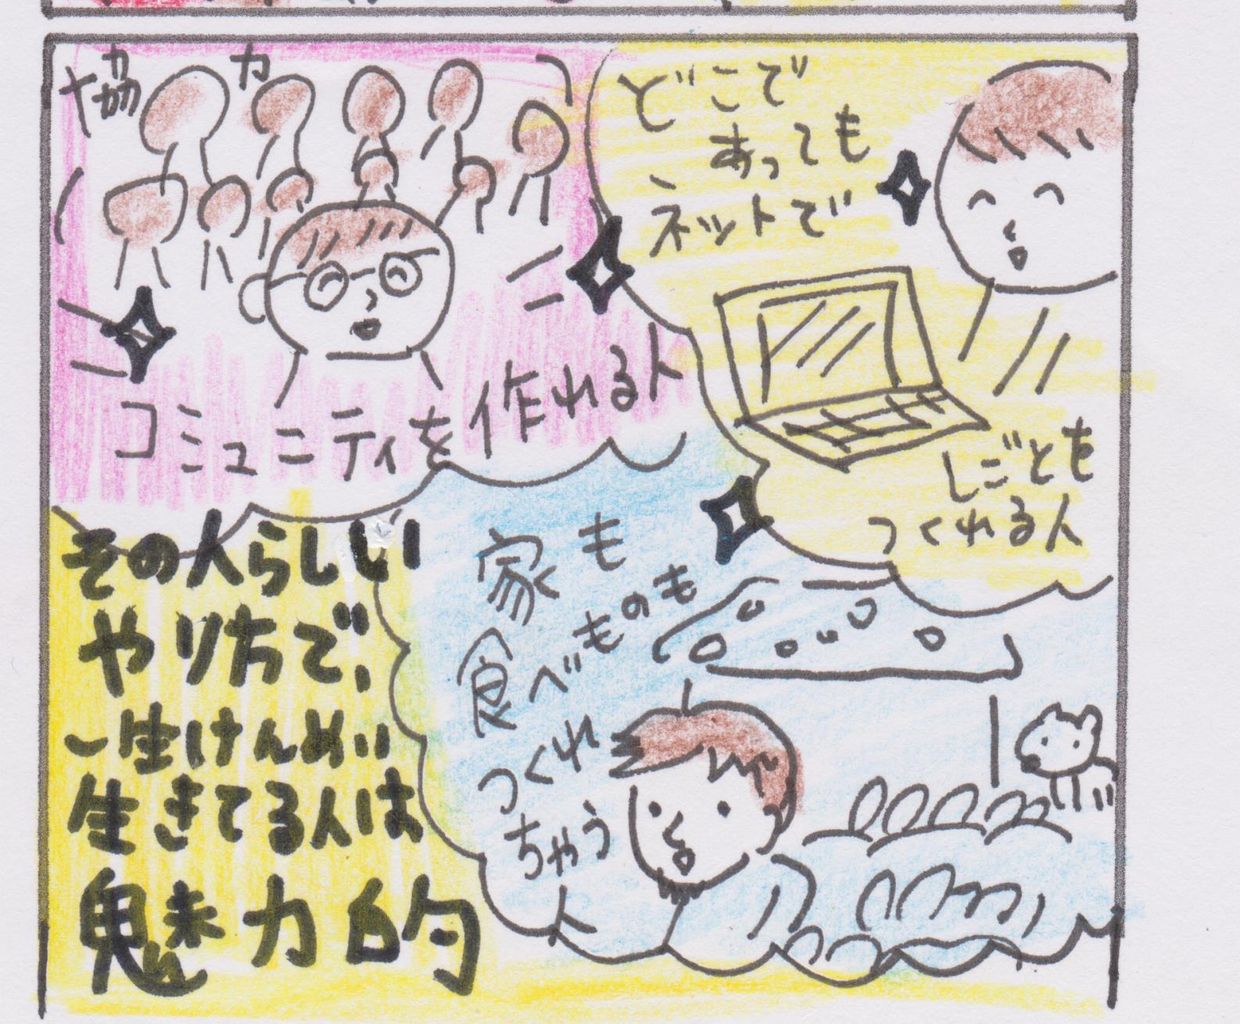 協力
コミュニティを作れる人
どこで
あっても
ネットで
しごとも
つくれる人
家も
食べものも
つくれ
ちゃう
人
その人らしい
やり方で、
一生けんめい
生きてる人は
魅力的